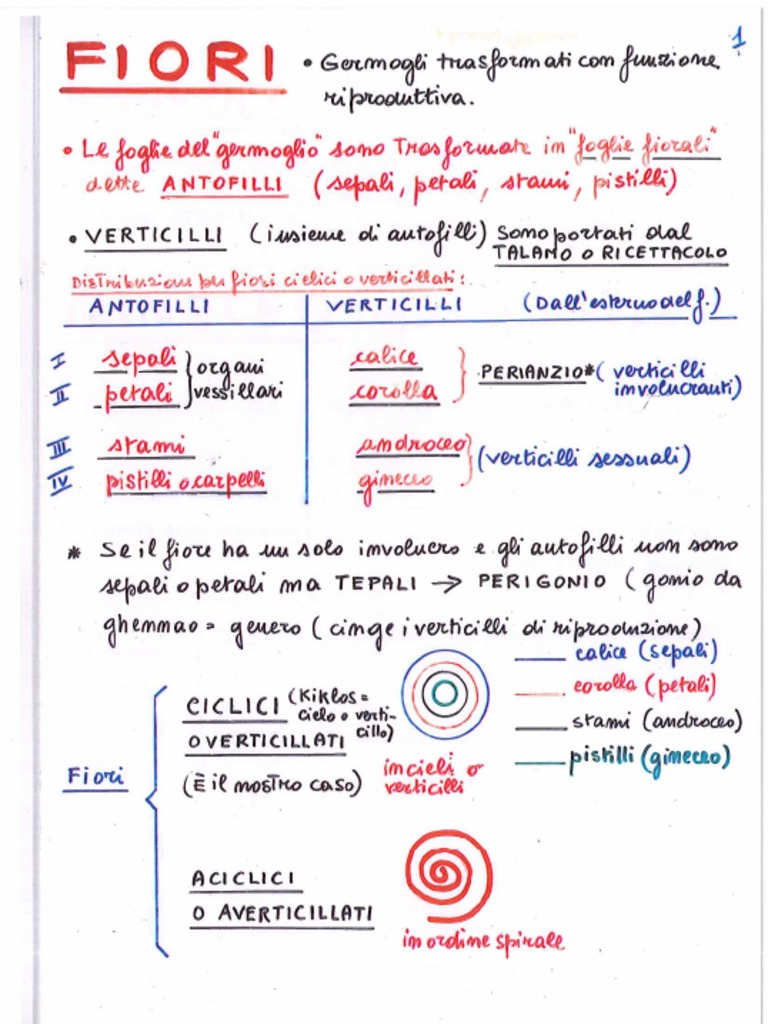 1
FIORI • Germogli trasformati con funzione
riproduttiva.
• Le foglie del "germoglio" sono trasformate in "foglie fiorali"
dette ANTOFILLI (sepali, petali, stami, pistilli)
• VERTICILLI (insieme di autofilli) sono portati dal
TALAMO O RICETTACOLO
Distribuzione per fiori ciclici o verticillati:
ANTOFILLI VERTICILLI (Dall'esterno del f.)
I sepali } organi calice } PERIANZIO* (verticilli
II petali } vessillari corolla } involucranti)
III stami androceo } (verticilli sessuali)
IV pistilli o carpelli gineceo }
* Se il fiore ha un solo involucro e gli autofilli non sono
sepali o petali ma TEPALI → PERIGONIO (gonio da
ghemmao = genero (cinge i verticilli di riproduzione)
calice (sepali)
corolla (petali)
stami (androceo)
pistilli (gineceo)
Fiori
CICLICI (Kiklos =
ciclo o verti-
cillo)
O VERTICILLATI
(È il nostro caso)
in cicli o
verticilli
ACICLICI
O AVERTICILLATI
in ordine spirale